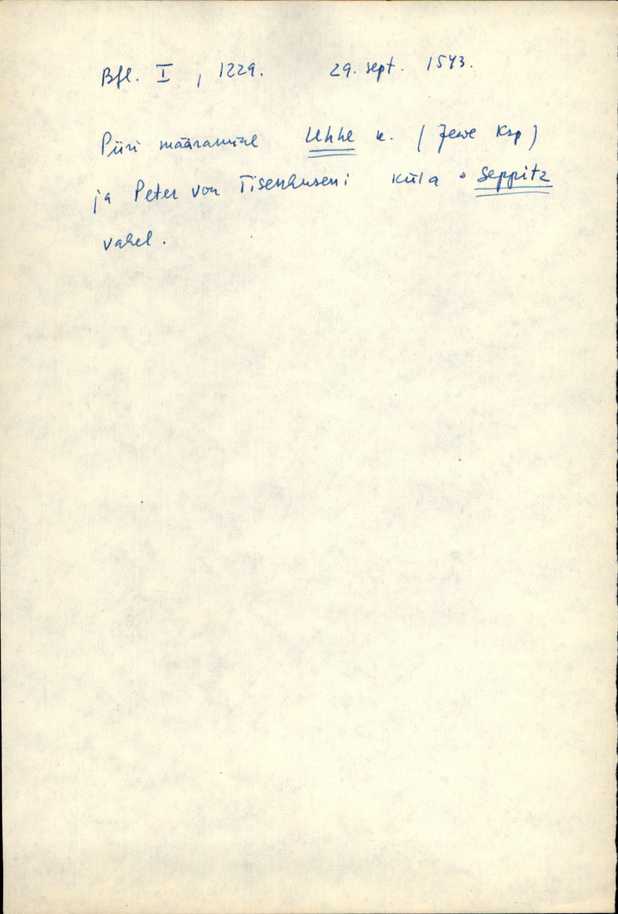 Bfl. I, 1229. 29. sept. 1543.
Piiri määramine Uhhe k. (Jewe Ksp)
ja Peter von Tisenhuseni küla Seppitz
vahel.